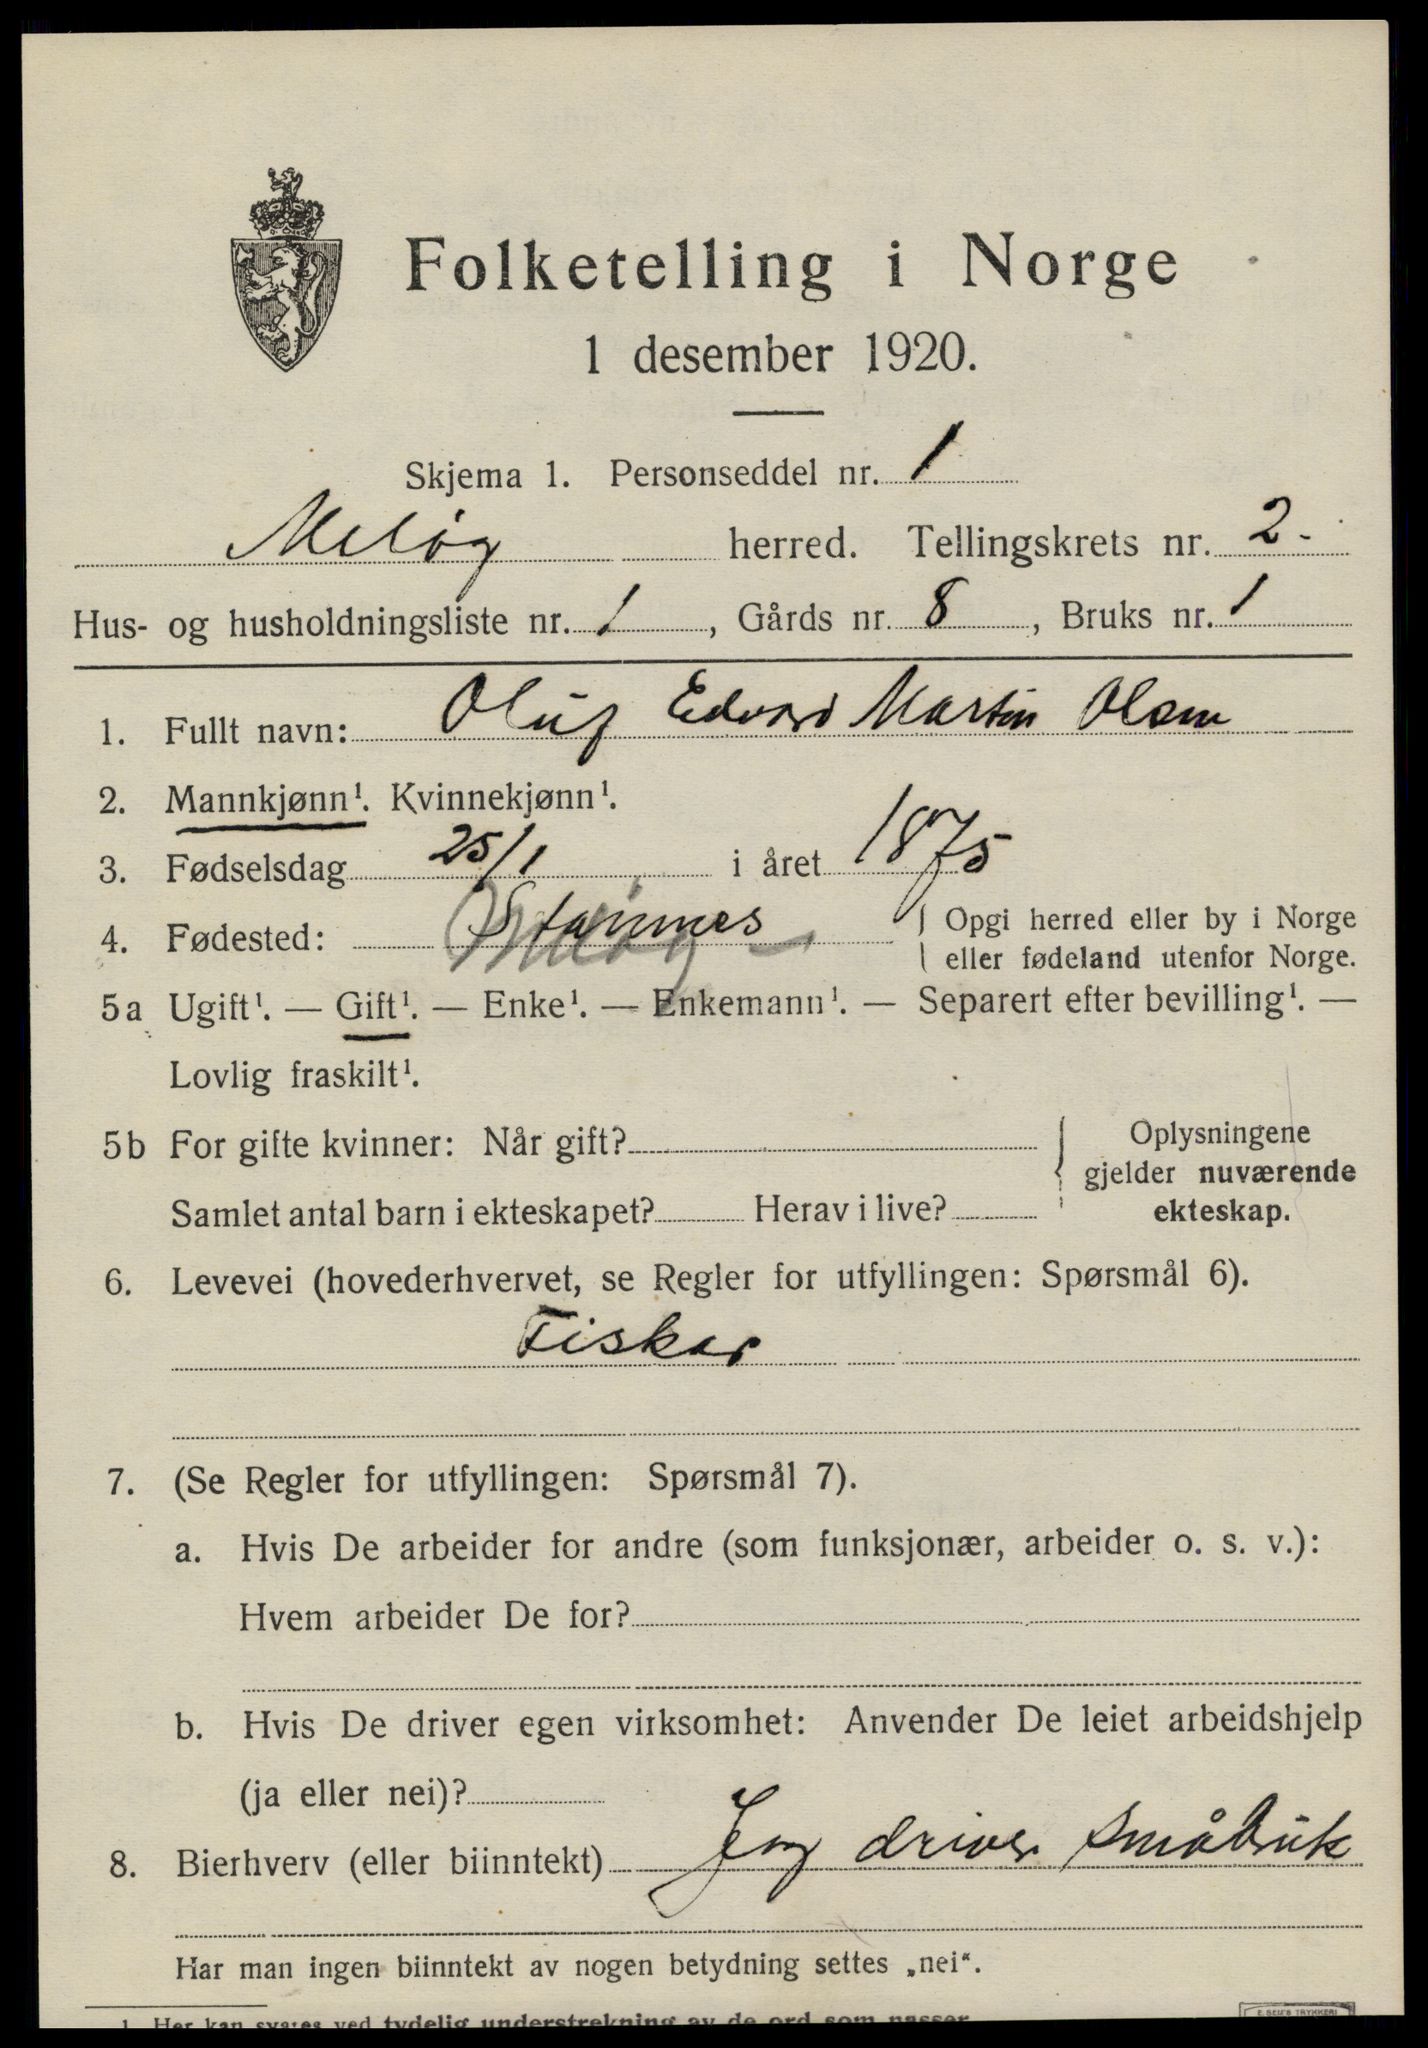 Folketelling i Norge
1 desember 1920.
Skjema 1. Personseddel nr. 1
Meløy herred. Tellingskrets nr. 2.
Hus- og husholdningsliste nr. 1, Gårds nr. 8, Bruks nr. 1
1. Fullt navn: Oluf Edvard Martin Olsen
2. Mannkjønn¹. Kvinnekjønn¹.
3. Fødselsdag 25/1 i året 1875
4. Fødested: Støtnnes Meløy } Opgi herred eller by i Norge
eller fødeland utenfor Norge.
5a Ugift¹. — Gift¹. — Enke¹. — Enkemann¹. — Separert efter bevilling¹. —
Lovlig fraskilt¹.
5b For gifte kvinner: Når gift? } Oplysningene
gjelder nuværende
Samlet antal barn i ekteskapet? Herav i live? ekteskap.
6. Levevei (hovederhvervet, se Regler for utfyllingen: Spørsmål 6).
Fisker
7. (Se Regler for utfyllingen: Spørsmål 7).
a. Hvis De arbeider for andre (som funksjonær, arbeider o. s. v.):
Hvem arbeider De for?
b. Hvis De driver egen virksomhet: Anvender De leiet arbeidshjelp
(ja eller nei)?
8. Bierhverv (eller biinntekt) Jeg driver småbruk
Har man ingen biinntekt av nogen betydning settes „nei“.
1 Her kan svares ved tydelig understrekning av de ord som passer
E. SEM'S TRYKKERI